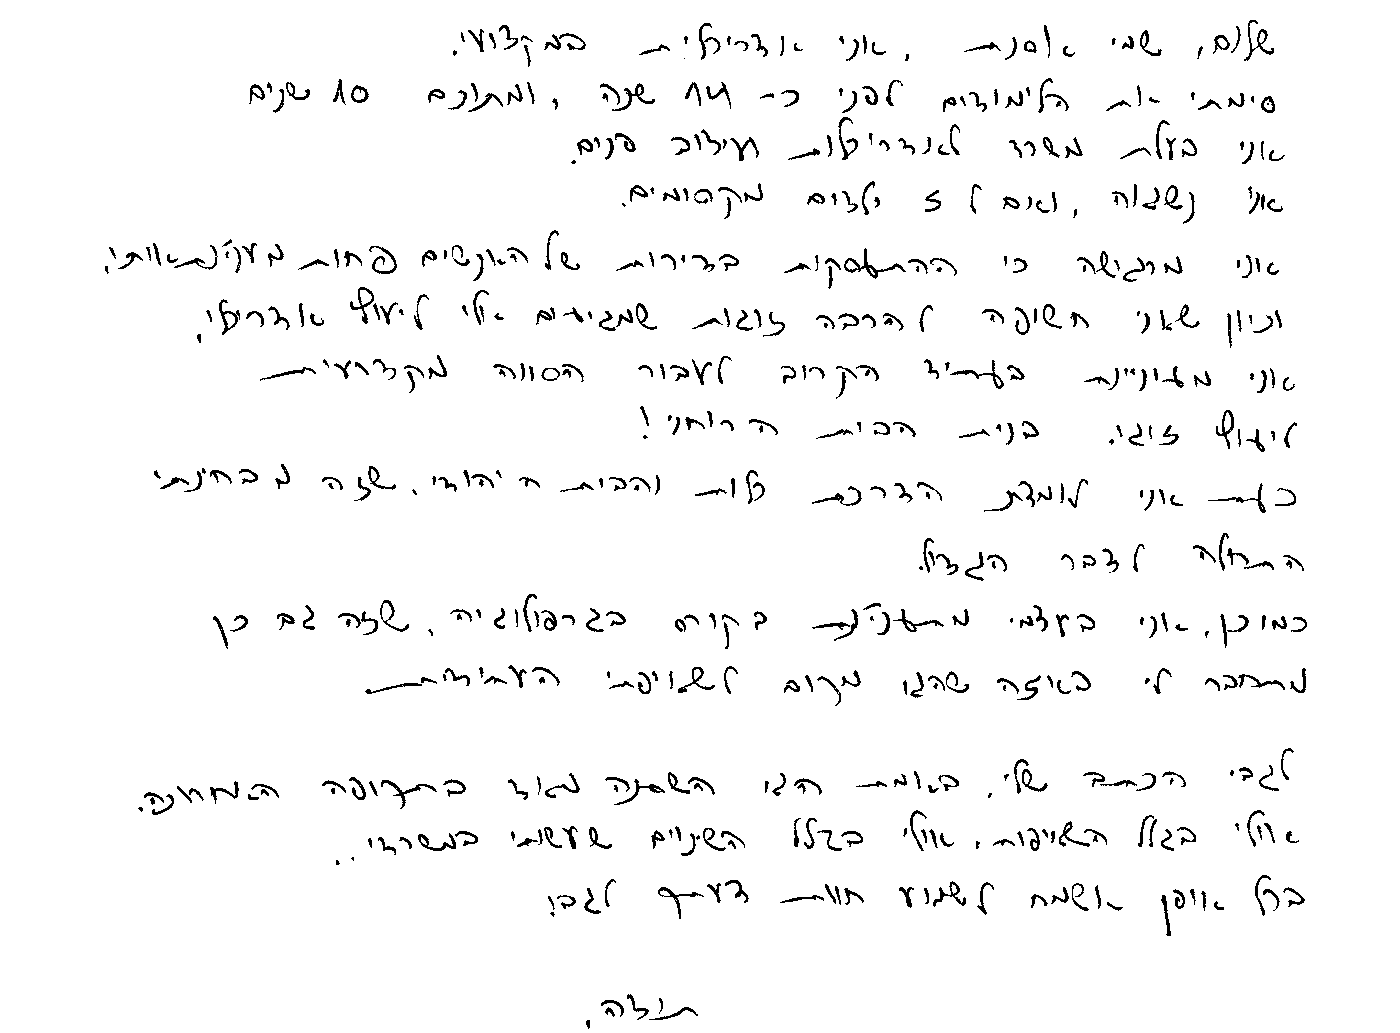 שלום, שמי אוסנת, אני אדריכלית במקצועי.
סימתי את הלימודים לפני כ- 14 שנה, ומתוכם 10 שנים
אני בעלת משרד לאדריכלות ועיצוב פנים.
אני נשואה, ואם ל 3 ילדים מקסימים.
אני מרגישה כי ההתעסקות בדירות של האנשים פחות מעניינת אותי,
וכיון שאני חשופה להרבה זוגות שמגיעים אלי ליעוץ אדריכלי,
אני מעוניינת בעתיד הקרוב לעבור הסווה מקצועית
ליעוץ זוגי. בנית הבית הרוחני!
כעת אני לומדת הדרכת כלות והבית היהודי, שזה מבחינתי
התחלה לדבר הגדול.
כמו כן, אני בעצמי מתענינת בקורס בגרפולוגיה, שזה גם כן
מתחבר לי באיזה שהוא מקום לשאיפתי העתידית.
לגבי הכתב שלי, באמת הוא השתנה מאוד בתקופה האחרונה.
אולי בגלל השאיפות, אולי בגלל השינוים שעשיתי במשרדי..
בכל אופן אשמח לשמוע חוות דעתך לגבי
תודה,